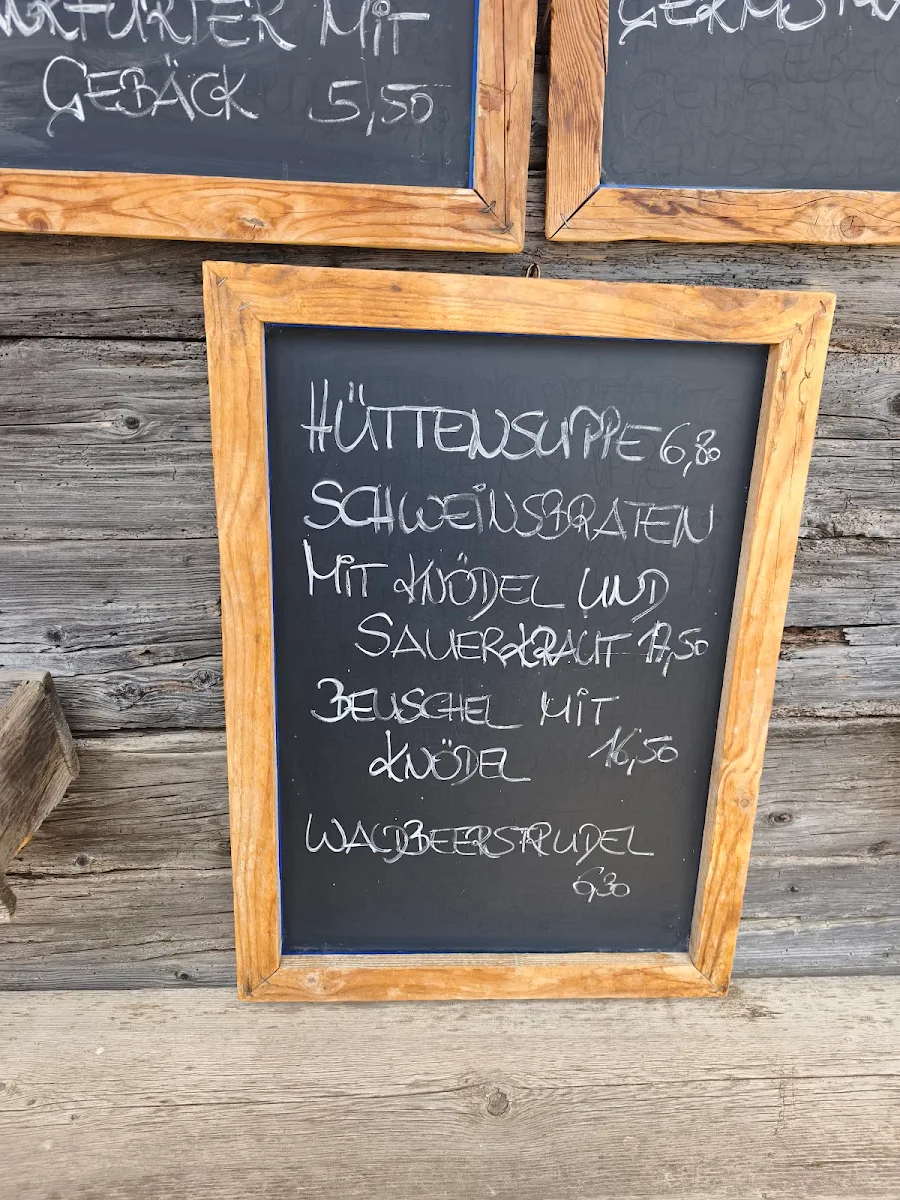 MIT
GEBÄCK 5,50
HÜTTENSUPPE 6,80
SCHWEINSBRATEN
MIT KNÖDEL UND
SAUERKRAUT 17,50
BEUSCHEL MIT
KNÖDEL 16,50
WALDBEERSTRUDEL
6,30